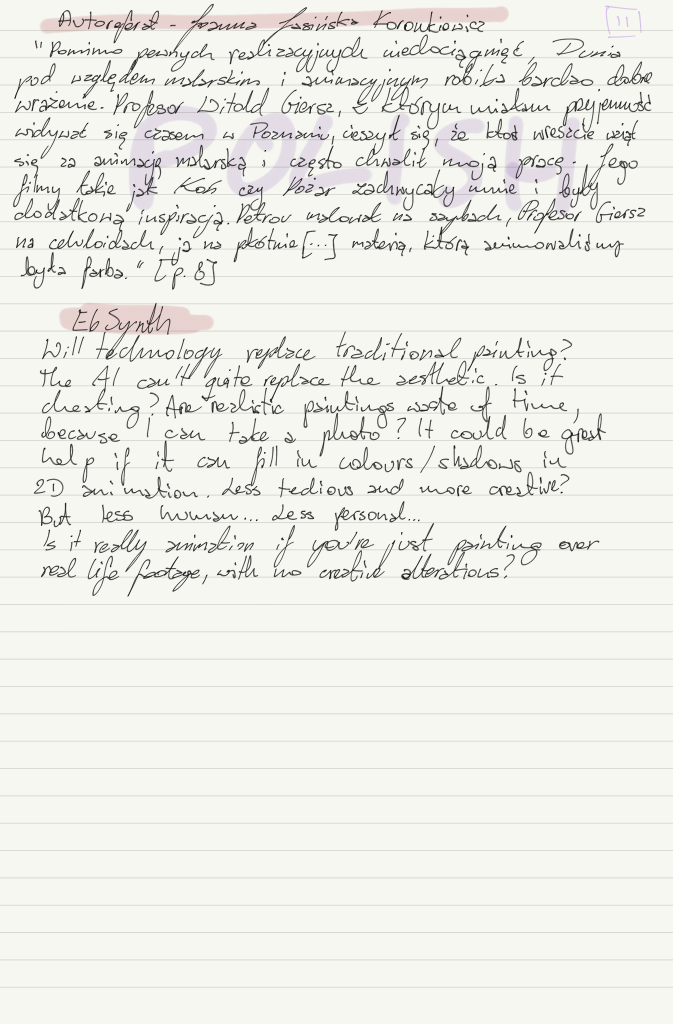 Autoreferat - Joanna Jasińska Koronkiewicz
11
"Pomimo pewnych realizacyjnych niedociągnięć, Dunia
pod względem malarskim i animacyjnym robiła bardzo dobre
wrażenie. Profesor Witold Giersz, z którym miałam przyjemność
widywać się czasem w Poznaniu, cieszył się, że ktoś wreszcie wziął
się za animację malarską i często chwalił moją pracę. Jego
filmy takie jak Koń czy Pożar zachwycały mnie i były
dodatkową inspiracją. Petrov malował na szybach, Profesor Giersz
na celuloidach, ja na płótnie [...] materią, którą animowaliśmy
była farba." [p. 8]
POLISH
EbSynth
Will technology replace traditional painting?
The AI can't quite replace the aesthetic. Is it
cheating? Are realistic paintings waste of time,
because I can take a photo? It could be great
help if it can fill in colours/shadows in
2D animation. Less tedious and more creative?
But less human... Less personal...
Is it really animation if you're just painting over
real life footage, with no creative alterations?